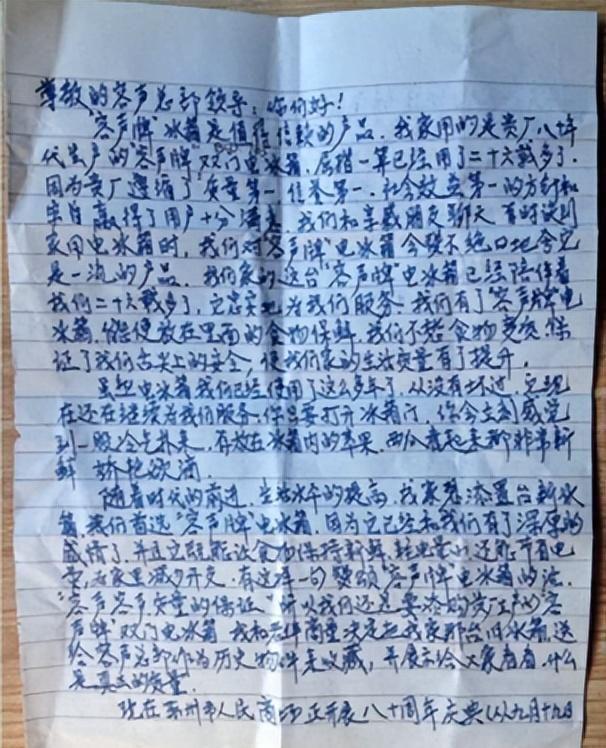 尊敬的容声总部领导：你们好！
"容声牌"冰箱是值得信赖的产品。我家用的是贵厂八十年
代生产的"容声牌"双门电冰箱，屈指一算已经用了二十六载多了。
因为贵厂遵循了质量第一、信誉第一、社会效益第一的方针和
宗旨，赢得了用户十分满意。我们和亲戚朋友聊天，有时谈到
家用电冰箱时，我们对"容声牌"电冰箱会赞不绝口地夸它
是一流的产品。我们家的这台"容声牌"电冰箱已经陪伴着
我们二十六载多了，它忠实地为我们服务。我们有了"容声牌"电
冰箱，能使放在里面的食物保鲜，我们不愁食物变质，保
证了我们舌尖上的安全，使我们家的生活质量有了提升。
虽然电冰箱我们已经使用了这么多年了，从没有坏过，它现
在还在继续为我们服务。你只要打开冰箱门，你会立刻感觉
到一股冷气扑来，存放在冰箱内的苹果、西瓜看起来都非常新
鲜、娇艳欲滴。
随着时代的前进，生活水平的提高，我家想添置台新冰
箱，我们首选"容声牌"电冰箱，因为它已经和我们有了深厚的
感情了，并且它既能让食物保持新鲜，耗电量小还能节省电
费，为家里减少开支。有这样一句赞颂"容声牌"电冰箱的话：
"容声容声质量的保证"所以我们还是要添购贵厂生产的"容
声牌"双门电冰箱。我和老伴商量决定把我家那台旧冰箱送
给容声总部作为历史物件来收藏，并展示给大家看看，什么
是真正的质量。
现在苏州市人民商场正开展八十周年庆典（从九月十九日